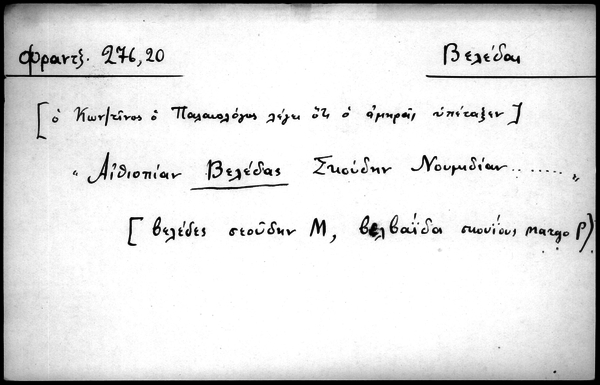 Φραντξ. 276,20 Βελέδαι
[ὁ Κων/τῖνος ὁ Παλαιολόγος λέγει ὅτι ὁ ἀμηρᾶς ὑπέταξεν]
"Αἰθιοπίαν Βελέδας Σκούδην Νουμιδίαν.......„
[βελέδες σεούδην Μ, βελβαΐδα σκουίους margo P)